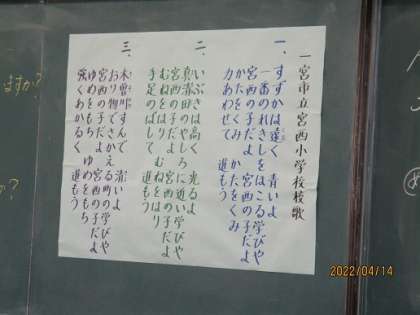 一宮市立宮西小学校校歌
一、すずかは遠く 青いよ
一番のれきしをほこる学びや
宮西の子だよ 宮西の子だよ
かたをくみ かたをくみ
力あわせて 進もう
二、いぶきは高く 光るよ
真清田のやしろに近い学びや
宮西の子だよ 宮西の子だよ
むねをはり むねをはり
手足のばして 進もう
三、木曽川すんで 清いよ
おり物でさかえる町の学びや
宮西の子だよ 宮西の子だよ
ゆめをもち ゆめをもち
強くあかるく 進もう
ますか?
か?
2022/04/14